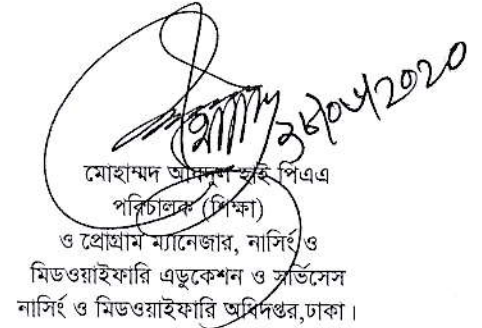 মোহাম্মদ আবদুল হাই পিএএ
পরিচালক (শিক্ষা)
ও প্রোগ্রাম ম্যানেজার, নার্সিং ও
মিডওয়াইফারি এডুকেশন ও সার্ভিসেস
নার্সিং ও মিডওয়াইফারি অধিদপ্তর,ঢাকা।